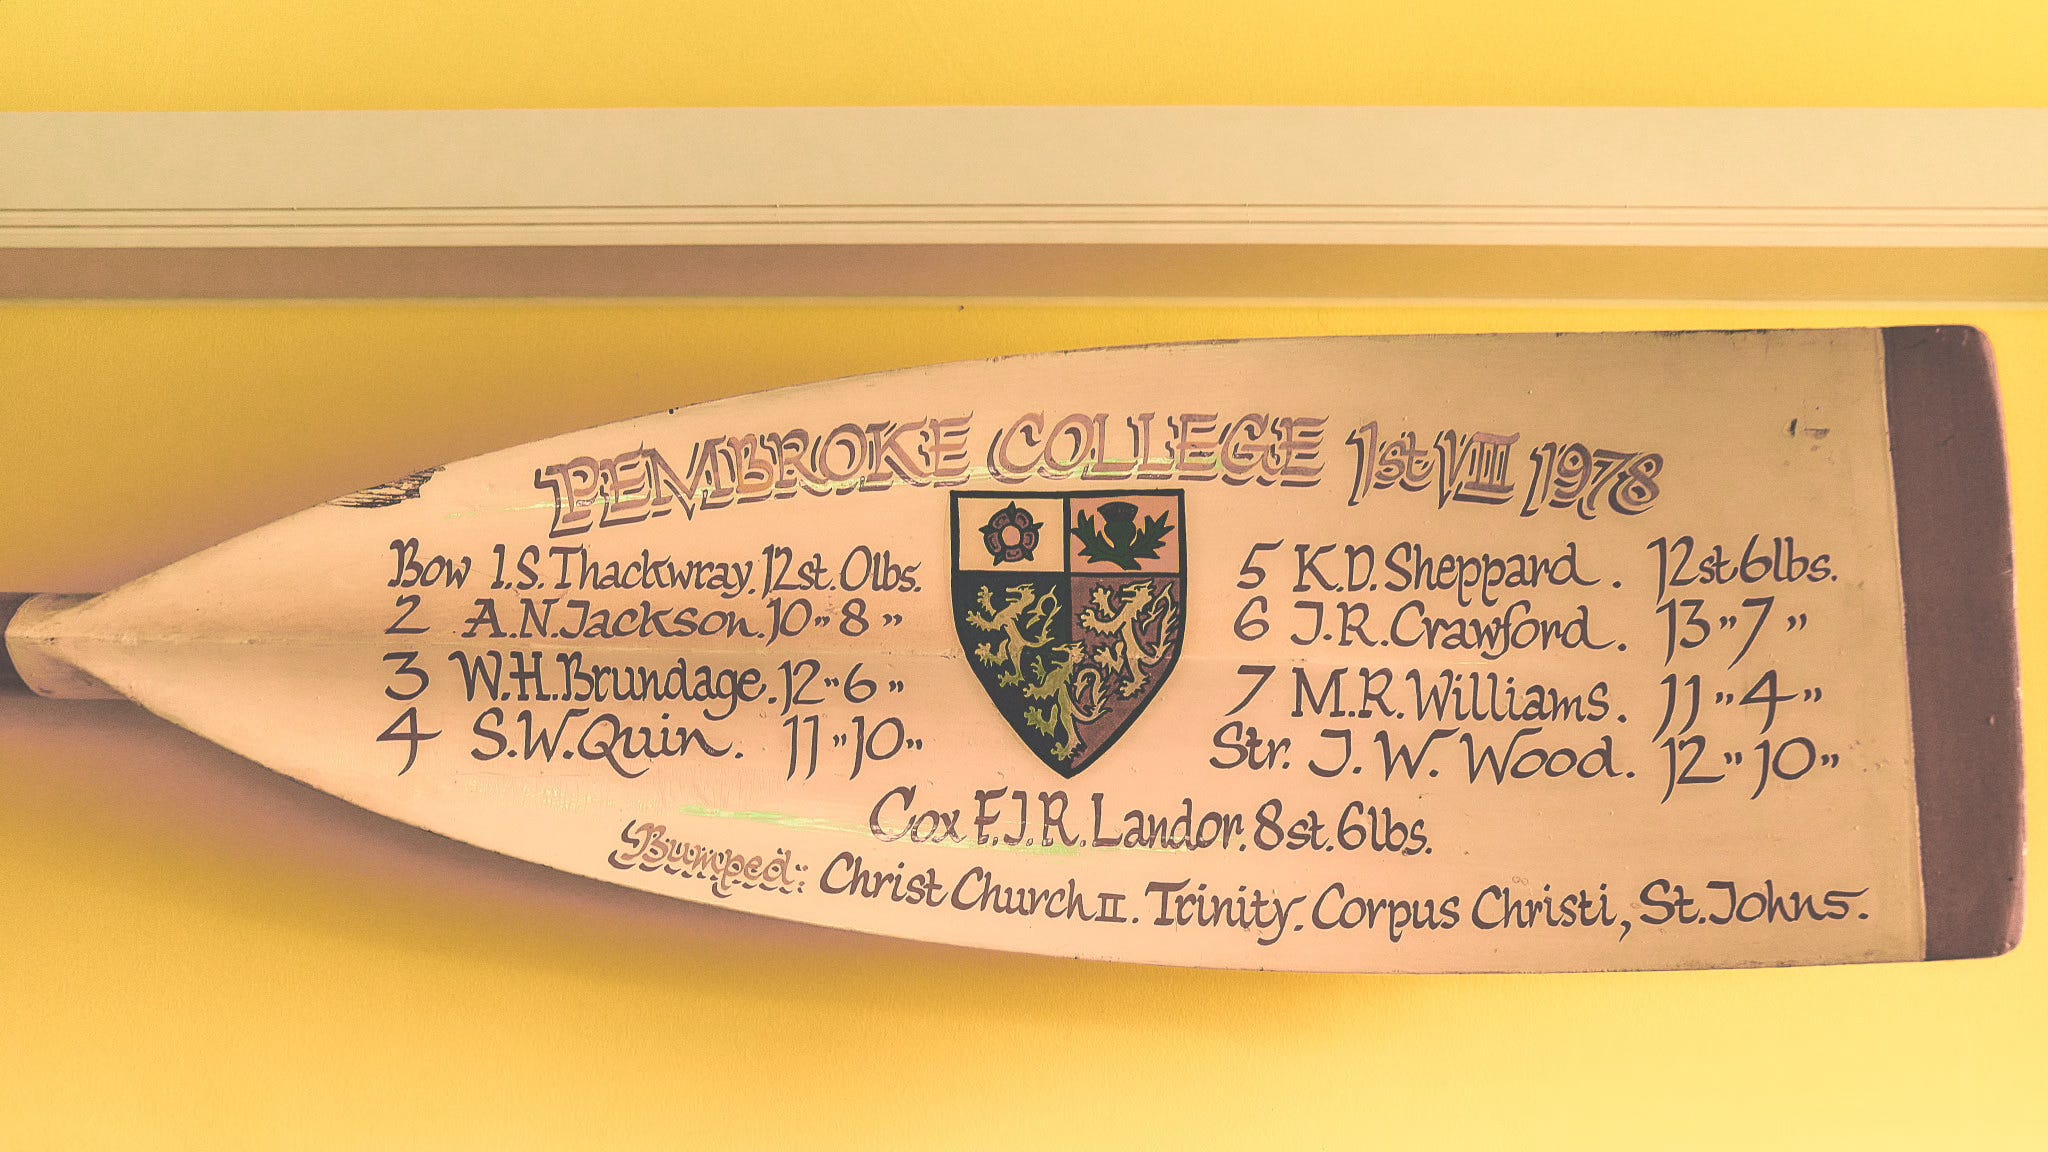 PEMBROKE COLLEGE 1st VIII 1978
Bow I.S. Thackwray. 12st. 0lbs.
2 A.N. Jackson. 10 " 8 "
3 W.H. Brundage. 12 " 6 "
4 S.W. Quin. 11 " 10 "
5 K.D. Sheppard. 12st 6lbs.
6 J.R. Crawford. 13 " 7 "
7 M.R. Williams. 11 " 4 "
Str. J. W. Wood. 12 " 10 "
Cox F.J.R. Landor. 8st. 6lbs.
Bumped: Christ Church II. Trinity. Corpus Christi, St. Johns.